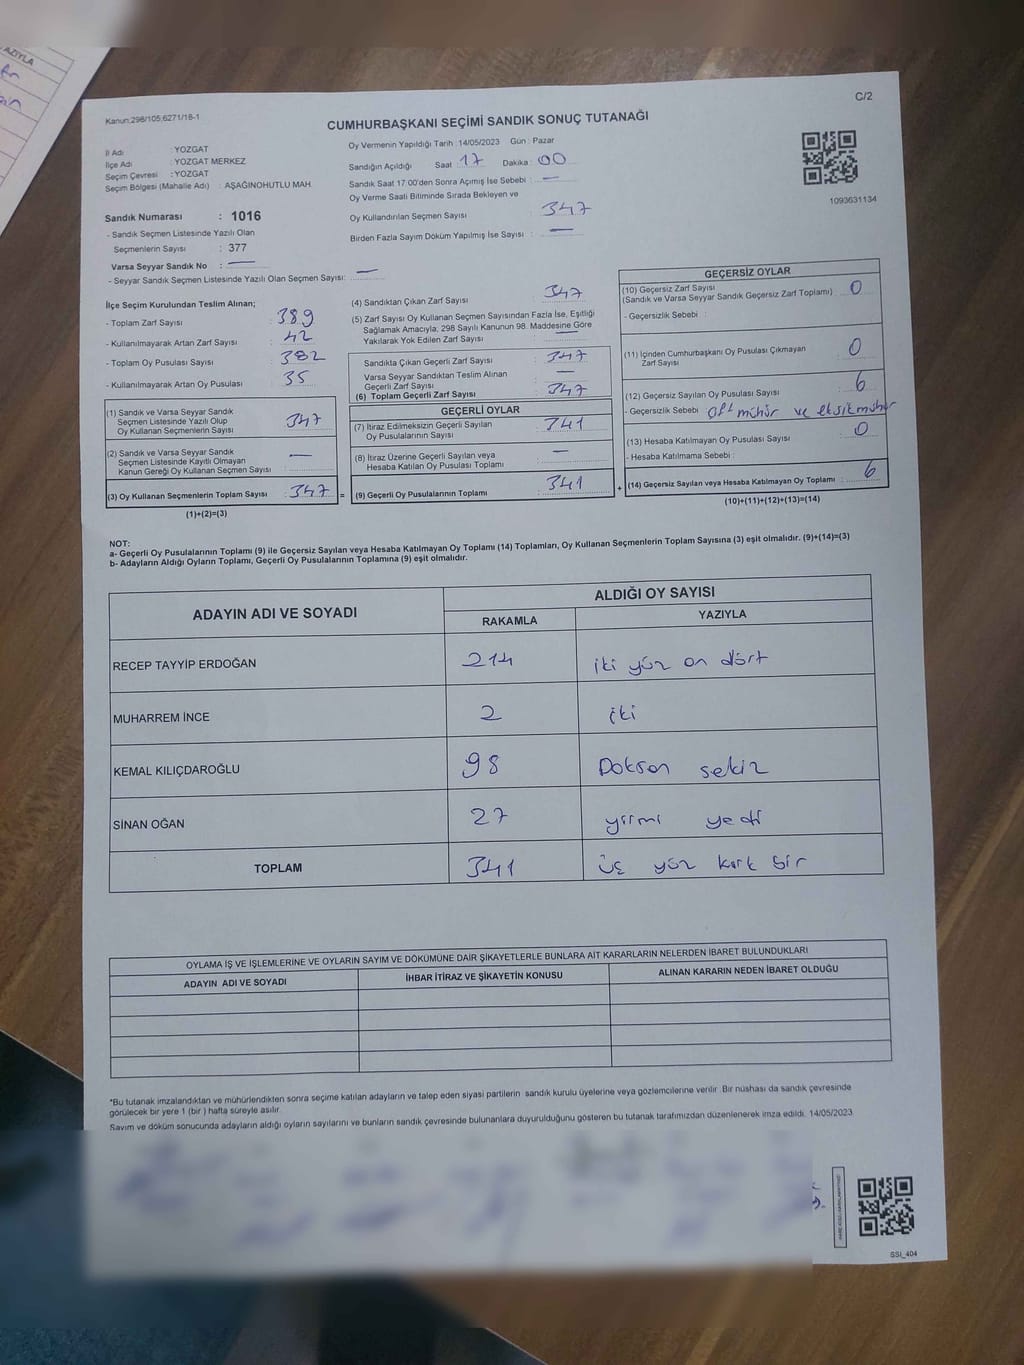 AZIYLA
C/2
Kanun:298/105,6271/18-1
CUMHURBAŞKANI SEÇİMİ SANDIK SONUÇ TUTANAĞI
İl Adı : YOZGAT
İlçe Adı : YOZGAT MERKEZ
Seçim Çevresi : YOZGAT
Seçim Bölgesi (Mahalle Adı) : AŞAĞINOHUTLU MAH.
Oy Vermenin Yapıldığı Tarih :14/05/2023 Gün : Pazar
Sandığın Açıldığı Saat : 17 Dakika : 00
Sandık Saat 17:00'den Sonra Açımış İse Sebebi : —
Oy Verme Saati Bitiminde Sırada Bekleyen ve
Oy Kullandırılan Seçmen Sayısı : 347
Birden Fazla Sayım Döküm Yapılmış İse Sayısı : —
1093631134
Sandık Numarası : 1016
- Sandık Seçmen Listesinde Yazılı Olan
Seçmenlerin Sayısı : 377
Varsa Seyyar Sandık No : —
- Seyyar Sandık Seçmen Listesinde Yazılı Olan Seçmen Sayısı: —
İlçe Seçim Kurulundan Teslim Alınan;
- Toplam Zarf Sayısı : 389
- Kullanılmayarak Artan Zarf Sayısı : 42
- Toplam Oy Pusulası Sayısı : 382
- Kullanılmayarak Artan Oy Pusulası : 35
(1) Sandık ve Varsa Seyyar Sandık
Seçmen Listesinde Yazılı Olup
Oy Kullanan Seçmenlerin Sayısı : 347
(2) Sandık ve Varsa Seyyar Sandık
Seçmen Listesinde Kayıtlı Olmayan
Kanun Gereği Oy Kullanan Seçmen Sayısı : —
(3) Oy Kullanan Seçmenlerin Toplam Sayısı : 347 =
(1)+(2)=(3)
(4) Sandıktan Çıkan Zarf Sayısı : 347
(5) Zarf Sayısı Oy Kullanan Seçmen Sayısından Fazla İse, Eşitliği
Sağlamak Amacıyla, 298 Sayılı Kanunun 98. Maddesine Göre
Yakılarak Yok Edilen Zarf Sayısı : —
Sandıkta Çıkan Geçerli Zarf Sayısı : 347
Varsa Seyyar Sandıktan Teslim Alınan
Geçerli Zarf Sayısı : —
(6) Toplam Geçerli Zarf Sayısı : 347
GEÇERLİ OYLAR
(7) İtiraz Edilmeksizin Geçerli Sayılan
Oy Pusulalarının Sayısı : 341
(8) İtiraz Üzerine Geçerli Sayılan veya
Hesaba Katılan Oy Pusulası Toplamı : —
(9) Geçerli Oy Pusulalarının Toplamı : 341 +
GEÇERSİZ OYLAR
(10) Geçersiz Zarf Sayısı : 0
(Sandık ve Varsa Seyyar Sandık Geçersiz Zarf Toplamı)
- Geçersizlik Sebebi :
(11) İçinden Cumhurbaşkanı Oy Pusulası Çıkmayan
Zarf Sayısı : 0
(12) Geçersiz Sayılan Oy Pusulası Sayısı : 6
- Geçersizlik Sebebi : mühür ve eksik mühür
(13) Hesaba Katılmayan Oy Pusulası Sayısı : 0
- Hesaba Katılmama Sebebi :
(14) Geçersiz Sayılan veya Hesaba Katılmayan Oy Toplamı : 6
(10)+(11)+(12)+(13)=(14)
NOT:
a- Geçerli Oy Pusulalarının Toplamı (9) ile Geçersiz Sayılan veya Hesaba Katılmayan Oy Toplamı (14) Toplamları, Oy Kullanan Seçmenlerin Toplam Sayısına (3) eşit olmalıdır. (9)+(14)=(3)
b- Adayların Aldığı Oyların Toplamı, Geçerli Oy Pusulalarının Toplamına (9) eşit olmalıdır.
ADAYIN ADI VE SOYADI ALDIĞI OY SAYISI
RAKAMLA YAZIYLA
RECEP TAYYİP ERDOĞAN 214 iki yüz on dört
MUHARREM İNCE 2 iki
KEMAL KILIÇDAROĞLU 98 Doksan sekiz
SİNAN OĞAN 27 yirmi yedi
TOPLAM 341 üç yüz kırk bir
OYLAMA İŞ VE İŞLEMLERİNE VE OYLARIN SAYIM VE DÖKÜMÜNE DAİR ŞİKAYETLERLE BUNLARA AİT KARARLARIN NELERDEN İBARET BULUNDUKLARI
ADAYIN ADI VE SOYADI İHBAR İTİRAZ VE ŞİKAYETİN KONUSU ALINAN KARARIN NEDEN İBARET OLDUĞU
*Bu tutanak imzalandıktan ve mühürlendikten sonra seçime katılan adayların ve talep eden siyasi partilerin sandık kurulu üyelerine veya gözlemcilerine verilir. Bir nüshası da sandık çevresinde
görülecek bir yere 1 (bir ) hafta süreyle asılır.
Sayım ve döküm sonucunda adayların aldığı oyların sayılarını ve bunların sandık çevresinde bulunanlara duyurulduğunu gösteren bu tutanak tarafımızdan düzenlenerek imza edildi. 14/05/2023
SSI_404